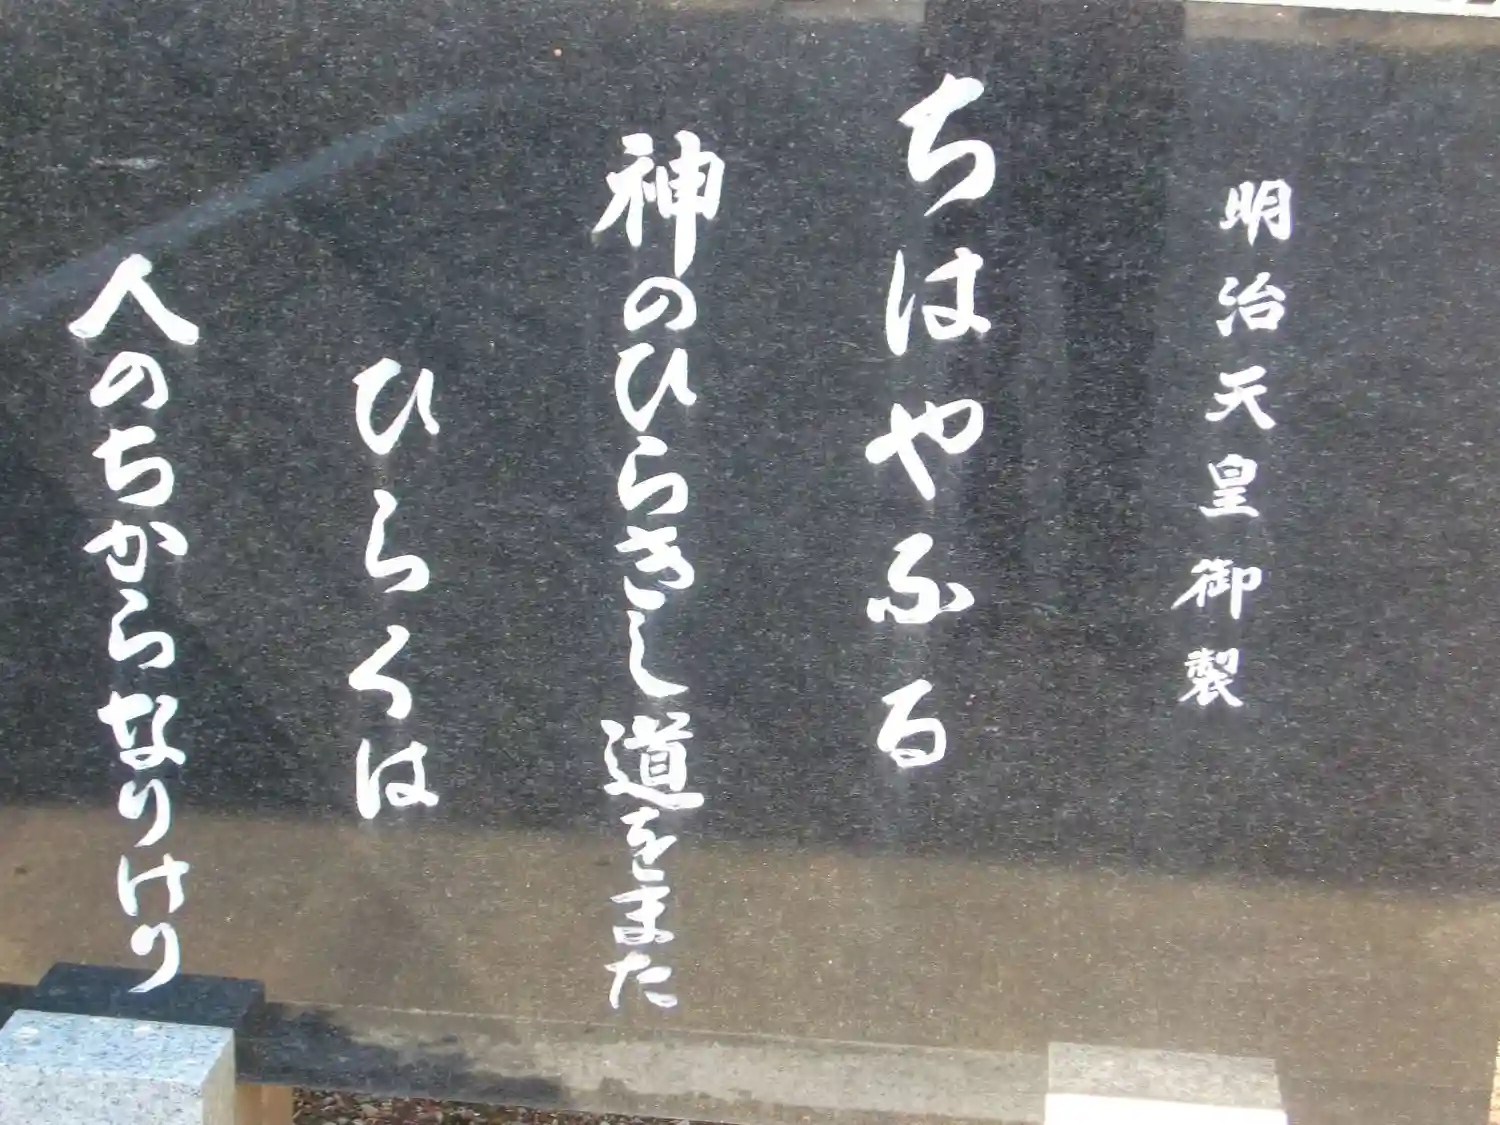 明治天皇御製
ちはやふる
神のひらきし道をまた
ひらくは
人のちからなりけり